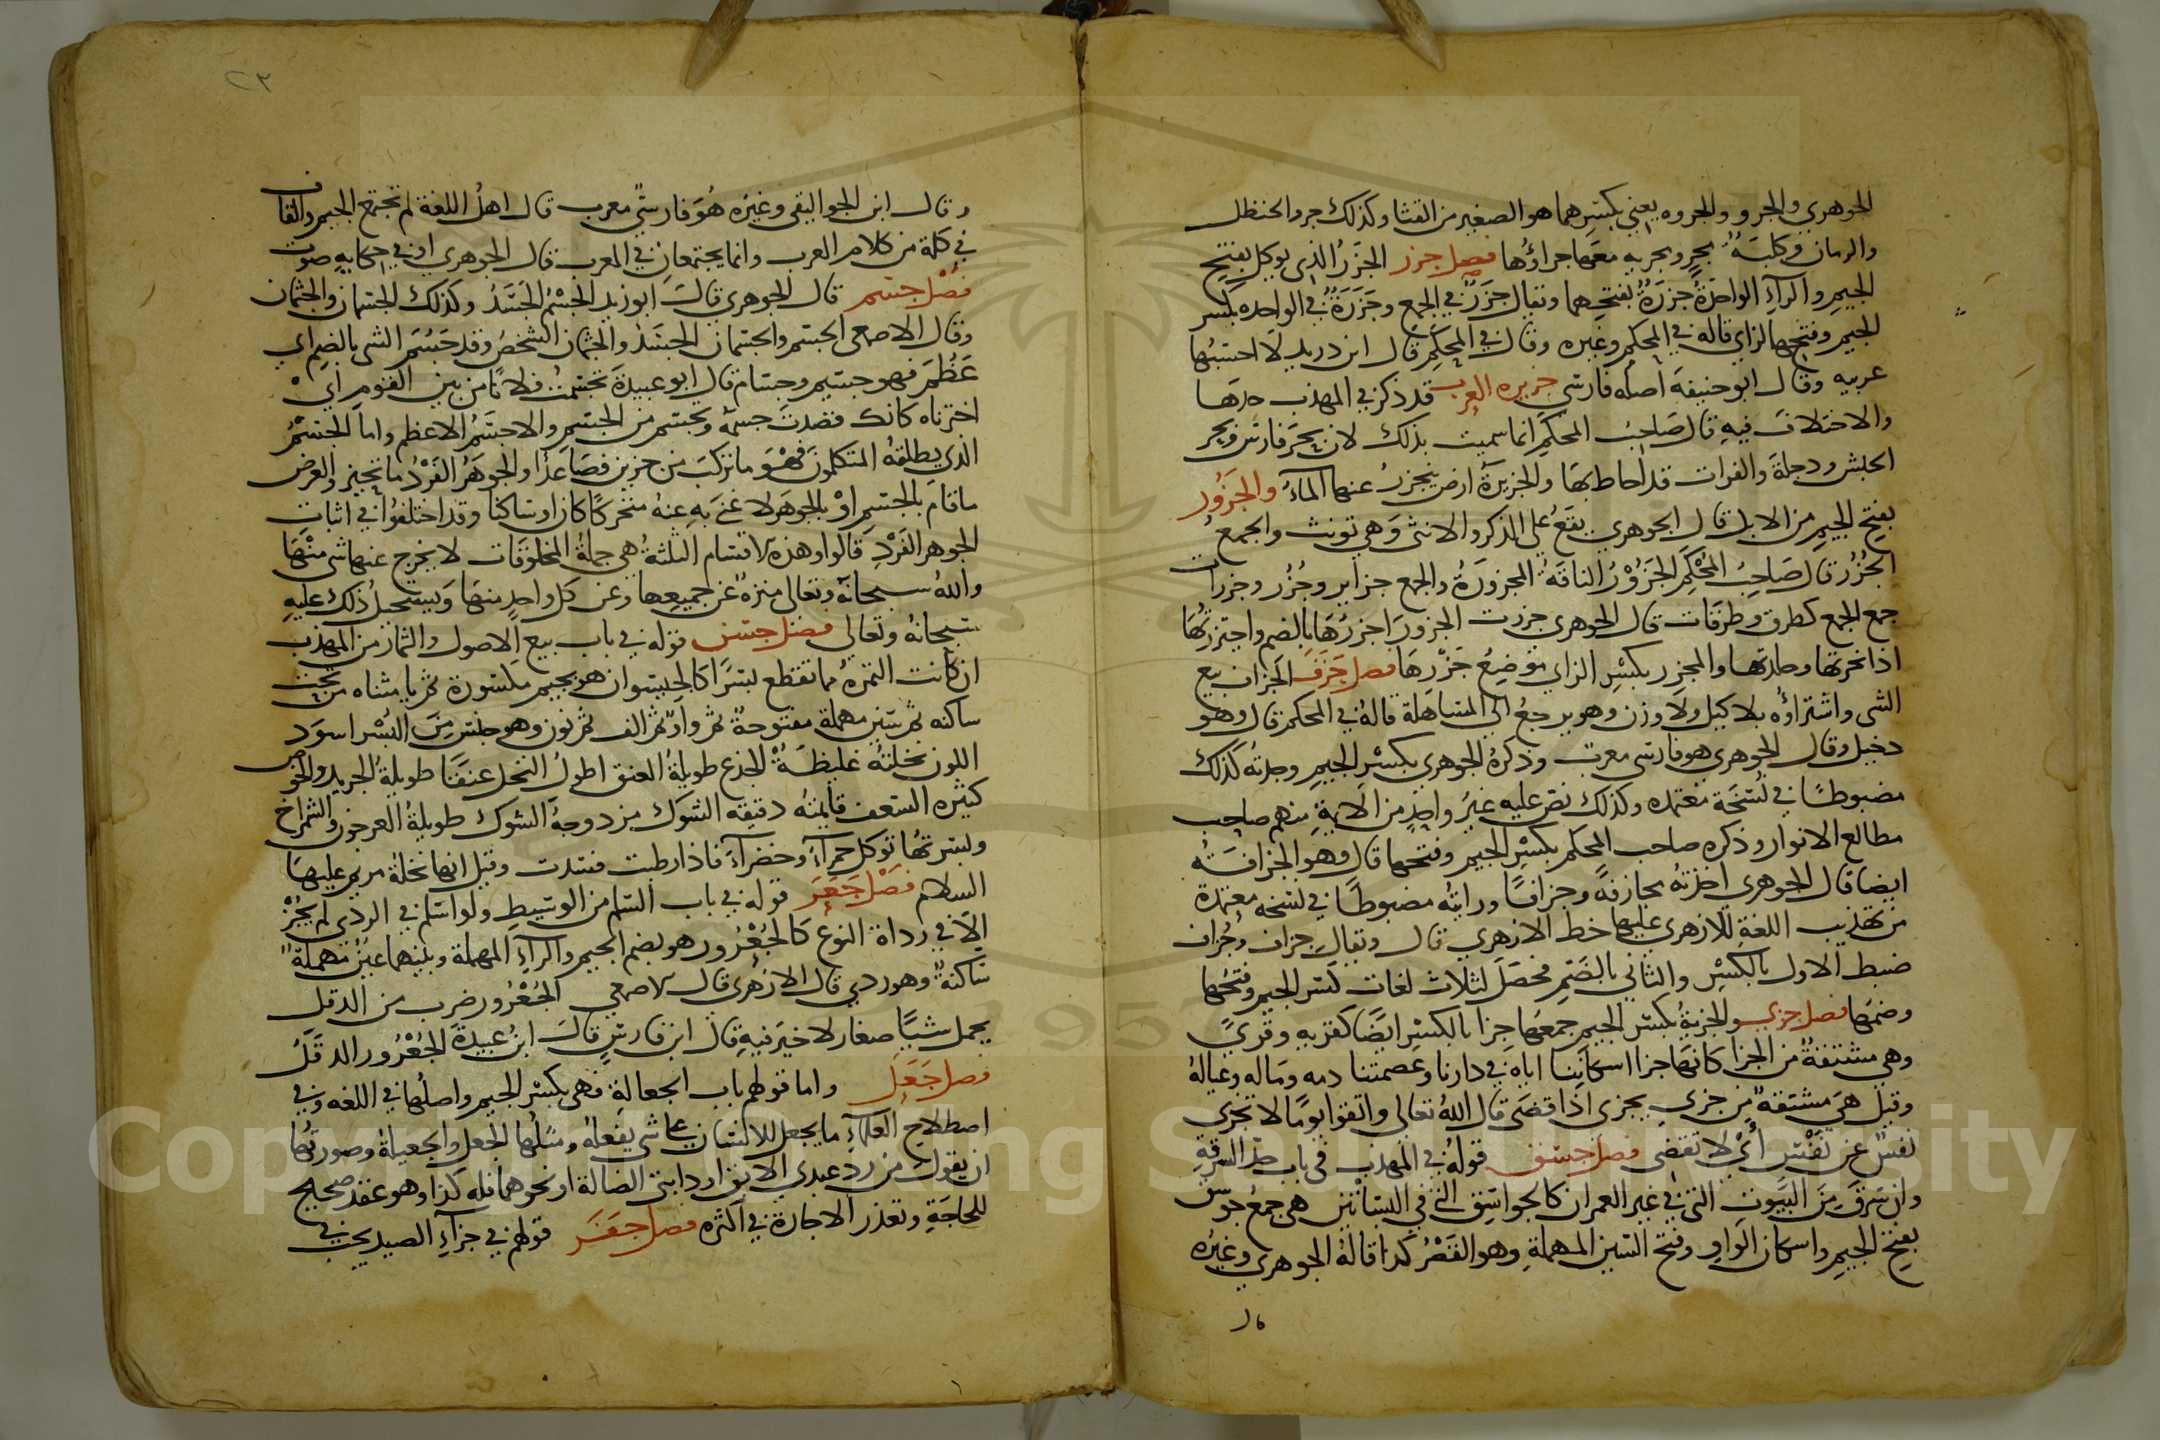 الجوهري والجرو والجروه يعني بكسرهما هو الصغير من القثا وكذلك جرو الحنظل
والرمان وكلبة مجر ومجريه معها جراؤها فصل جزر الجزر الذي يوكل بفتح
الجيم والرآء الواحدة جزرة بفتحهما ويقال جزر في الجمع وجزرة في الواحده بكسر
الجيم وفتحها الزاي قاله في المحكم وغيره وقال في المحكم قال ابن دريد لا احسبها
عربيه وقال ابو حنيفة اصله فارسي جزيره العرب قد ذكر في المهذب حدها
والاختلاف فيه قال صاحب المحكم انما سميت بذلك لان بحر فارس وبحر
الحبش ودجلة والفرات قد احاط بها والجزيرة ارض ينجزر عنها المآء والجزور
بفتح الجيم من الابل قال الجوهري يقع على الذكر والانثى وهي تونث والجمع
الجزر قال صاحب المحكم الجزور الناقة المجزورة والجمع جزاير وجزر وجزرات
جمع الجمع كطرق وطرقات قال الجوهري جزرت الجزور اجزرها بالضم واجتزرتها
اذا نحرتها وجلدتها والمجزر بكسر الزاي موضع جزرها فصل جزف الجزاف بيع
الشى واشتراؤه بلا كيل ولا وزن وهو يرجع الى المساهلة قاله في المحكم قال وهو
دخيل وقال الجوهري هو فارسي معرب وذكره الجوهري بكسر الجيم وجدته كذلك
مضبوطا في نسخة معتمده وكذلك نص عليه غير واحد من الايمة منهم صاحب
مطالع الانوار وذكره صاحب المحكم بكسر الجيم وفتحها قال وهو الجزافة
ايضا قال الجوهري اخذته مجازفة وجزافا ورايته مضبوطا في نسخه معتمدة
من تهذيب اللغة للازهري عليها خط الازهري قال ويقال جزاف وجزاف
ضبط الاول بالكسر والثاني بالضم فحصل لثلاث لغات كسر الجيم وفتحها
وضمها فصل جزي والجزية بكسر الجيم جمعها جزا بالكسر ايضا كقربه وقرى
وهي مشتقة من الجزا كانها جزا اسكاننا اياه في دارنا وعصمتنا دمه وماله وعياله
وقيل هي مشتقة من جزى يجزى اذا قضى قال الله تعالى واتقوا يوما لا تجزى
نفس عن نفس أي لا تقضى فصل جسق قوله في المهذب في باب حد السرقة
وان سرق من البيوت التي في غير العمران كالجواسق التي في البساتين هي جمع جوسق
بفتح الجيم واسكان الواو وفتح السين المهملة وهو القصر كذا قاله الجوهري وغيره
وقال ابن الجواليقي وغيره هو فارسي معرب قال اهل اللغة لم تجتمع الجيم والقاف
في كلمة من كلام العرب وانما يجتمعان في المعرب قال الجوهري او في حكاية صوت
فصل جسم قال الجوهري قال ابو زيد الجسم الجسد وكذلك الجسمان والجثمان
وقال الاصمعي الجسم والجسمان الجسد والجثمان الشخص وقد جسم الشى بالضم اي
عظم فهو جسيم وجسام قال ابو عبيدة تجسمت فلانا من بين القوم أي
اخترناه كانك قصدت جسمه وتجسم من الجسم والاجسم الاعظم واما الجسم
الذي يطلقه المتكلمون فهو ما تركب من جزين فصاعدا والجوهر الفرد ما تحيز والعرض
ما قام بالجسم او بالجوهر لا غنى به عنه متحركا كان او ساكنا وقد اختلفوا في اثبات
الجوهر الفرد قالوا وهذه الاقسام الثلثة هي جملة المخلوقات لا يخرج عنها شى منها
والله سبحانه وتعالى منزه عن جميعها وعن كل واحد منها ويستحيل ذلك عليه
سبحانه وتعالى فصل جسن قوله في باب بيع الاصول والثمار من المهذب
ان كانت الثمرة مما تقطع بسرا كالجيسوان هو بجيم مكسورة ثم يا مثناه من تحت
ساكنه ثم سين مهملة مفتوحة ثم واو ثم الف ثم نون وهو جنس من البسر اسود
اللون نخلته غليظة الجذع طويلة العنق اطول النخل عنقا طويلة الجريد والخوص
كثيره السعف قايمته دقيقة الشوك مزدوجة الشوك طويلة العرجون والشمراخ
وبسرتها توكل حمرآء وخضرآء فاذا رطبت فسدت وقيل انها نخلة مريم عليها
السلام فصل جعر قوله في باب السلم من الوسيط ولو اسلم في الردى لم يجز
الا في رداة النوع كالجعرور هو بضم الجيم والرآء المهملة وبينهما عين مهملة
ساكنة وهو ردي قال الازهري قال الاصمعي الجعرور ضرب من الدقل
يحمل شيئا صغارا لا خير فيه قال ابن فارس قال ابن عبيدة الجعرور الدقل
فصل جعل واما قولهم باب الجعالة فهي بكسر الجيم واصلها في اللغه وفي
اصطلاح العلمآء ما يجعل للانسان على شي يفعله ومثلها الجعل والجعيلة وصورتها
ان يقول من رد عبدي الابق او دابتي الضالة او نحوهما فله كذا وهو عقد صحيح
للحاجة وتعذر الاجارة في اكثره فصل جفر قولهم في جزآء الصيد يجب في